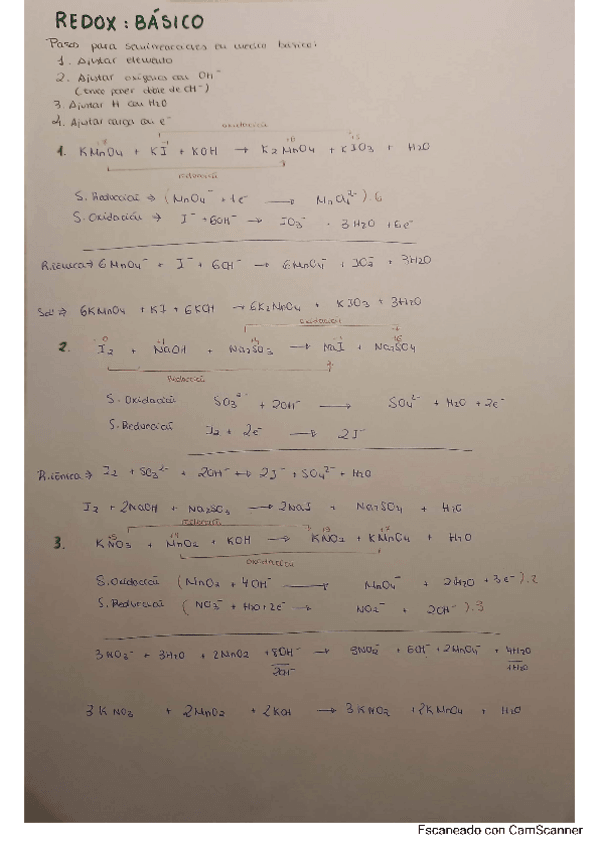 REDOX : BÁSICO
Pasos para semireacciones en medio básico:
1. Ajustar elemento
2. Ajustar oxígenos con OH⁻
(tengo poner doble de OH⁻)
3. Ajustar H con H2O
4. Ajustar carga con e⁻
oxidación
1. KMnO4 + KI + KOH → K2MnO4 + KIO3 + H2O
reducción
S. Reducción → (MnO4⁻ + 1e⁻ → MnO4²⁻).6
S. Oxidación → I⁻ + 6OH⁻ → IO3⁻ + 3H2O + 6e⁻
R.iónica → 6MnO4⁻ + I⁻ + 6OH⁻ → 6MnO4⁻ + IO3⁻ + 3H2O
Sol → 6KMnO4 + KI + 6KOH → 6K2MnO4 + KIO3 + 3H2O
Oxidación
2. I2 + NaOH + Na2SO3 → NaI + Na2SO4
Reducción
S. Oxidación SO3²⁻ + 2OH⁻ → SO4²⁻ + H2O + 2e⁻
S. Reducción I2 + 2e⁻ → 2I⁻
R.iónica → I2 + SO3²⁻ + 2OH⁻ ↔ 2I⁻ + SO4²⁻ + H2O
I2 + 2NaOH + Na2SO3 → 2NaI + Na2SO4 + H2O
reducción
3. KNO3 + MnO2 + KOH → KNO2 + KMnO4 + H2O
oxidación
S. Oxidación (MnO2 + 4OH⁻ → MnO4⁻ + 2H2O + 3e⁻).2
S. Reducción (NO3⁻ + H2O + 2e⁻ → NO2⁻ + 2OH⁻).3
3NO3⁻ + 3H2O + 2MnO2 + 8OH⁻ → 3NO2⁻ + 6OH⁻ + 2MnO4⁻ + 4H2O
2OH⁻ 1H2O
3KNO3 + 2MnO2 + 2KOH → 3KNO2 + 2KMnO4 + H2O
Escaneado con CamScanner